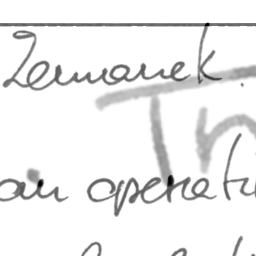 Zermanek.
Th
an operati